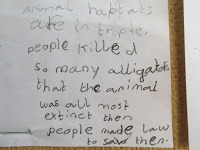 Animal hapitats
are in truple.
people killed
so many alligators
that the animal
was all most
extinct then
people made law
to save them.